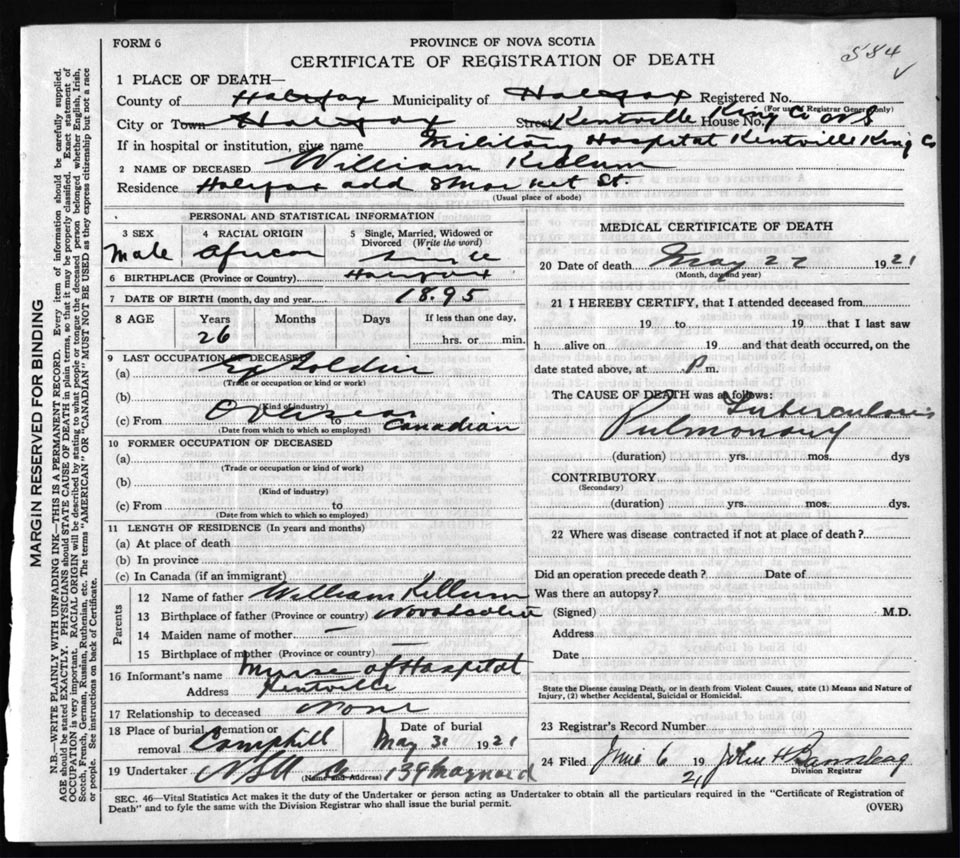 FORM 6
PROVINCE OF NOVA SCOTIA
CERTIFICATE OF REGISTRATION OF DEATH
584
1 PLACE OF DEATH—
County of Halifax Municipality of Halifax Registered No.
(For use of Registrar General only)
City or Town Halifax Street Kentville King Co House No.
If in hospital or institution, give name Military Hospital Kentville King Co
2 NAME OF DECEASED William Killum
Residence Halifax add 8 Market St.
(Usual place of abode)
PERSONAL AND STATISTICAL INFORMATION
3 SEX
Male
4 RACIAL ORIGIN
African
5 Single, Married, Widowed or Divorced (Write the word)
Single
6 BIRTHPLACE (Province or Country) Halifax
7 DATE OF BIRTH (month, day and year) 1895
8 AGE Years Months Days If less than one day,
26 hrs. or min.
9 LAST OCCUPATION OF DECEASED
(a) Ex Soldier
(Trade or occupation or kind or work)
(b)
(Kind of industry)
(c) From Overseas to Canadian
(Date from which to which so employed)
10 FORMER OCCUPATION OF DECEASED
(a)
(Trade or occupation or kind of work)
(b)
(Kind of industry)
(c) From to
(Date from which to which so employed)
11 LENGTH OF RESIDENCE (In years and months)
(a) At place of death
(b) In province
(c) In Canada (if an immigrant)
Parents
12 Name of father William Killum
13 Birthplace of father (Province or country) Nova Scotia
14 Maiden name of mother —
15 Birthplace of mother (Province or country) —
16 Informant's name Nurse of Hospital
Address Kentville
17 Relationship to deceased None
18 Place of burial, cremation or removal Camphill
Date of burial
May 31 1921
19 Undertaker N S U Co 139 Maynard
(Name and Address)
MEDICAL CERTIFICATE OF DEATH
20 Date of death May 27 1921
(Month, day and year)
21 I HEREBY CERTIFY, that I attended deceased from
19 to 19 that I last saw
h alive on 19 and that death occurred, on the
date stated above, at P m.
The CAUSE OF DEATH was as follows: Tuberculosis
Pulmonary
(duration) yrs. mos. dys
CONTRIBUTORY
(Secondary)
(duration) yrs. mos. dys.
22 Where was disease contracted if not at place of death?
Did an operation precede death? Date of
Was there an autopsy?
(Signed) M.D.
Address
Date
State the Disease causing Death, or in death from Violent Causes, state (1) Means and Nature of
Injury, (2) whether Accidental, Suicidal or Homicidal.
23 Registrar's Record Number
24 Filed June 6 1921 John H
Division Registrar
SEC. 46—Vital Statistics Act makes it the duty of the Undertaker or person acting as Undertaker to obtain all the particulars required in the "Certificate of Registration of
Death" and to fyle the same with the Division Registrar who shall issue the burial permit.
(OVER)
MARGIN RESERVED FOR BINDING
N.B.—WRITE PLAINLY WITH UNFADING INK—THIS IS A PERMANENT RECORD. Every item of information should be carefully supplied.
AGE should be stated EXACTLY. PHYSICIANS should STATE CAUSE OF DEATH in plain terms, so that it may be properly classified. Exact statement of
OCCUPATION is very important. RACIAL ORIGIN will be described by stating to what people or tongue the deceased person belonged whether English, Irish,
Scotch, French, German, Russian, Ruthenian, etc. The terms "AMERICAN" OR "CANADIAN" MUST NOT BE USED as they express citizenship but not a race
or people. See instructions on back of Certificate.